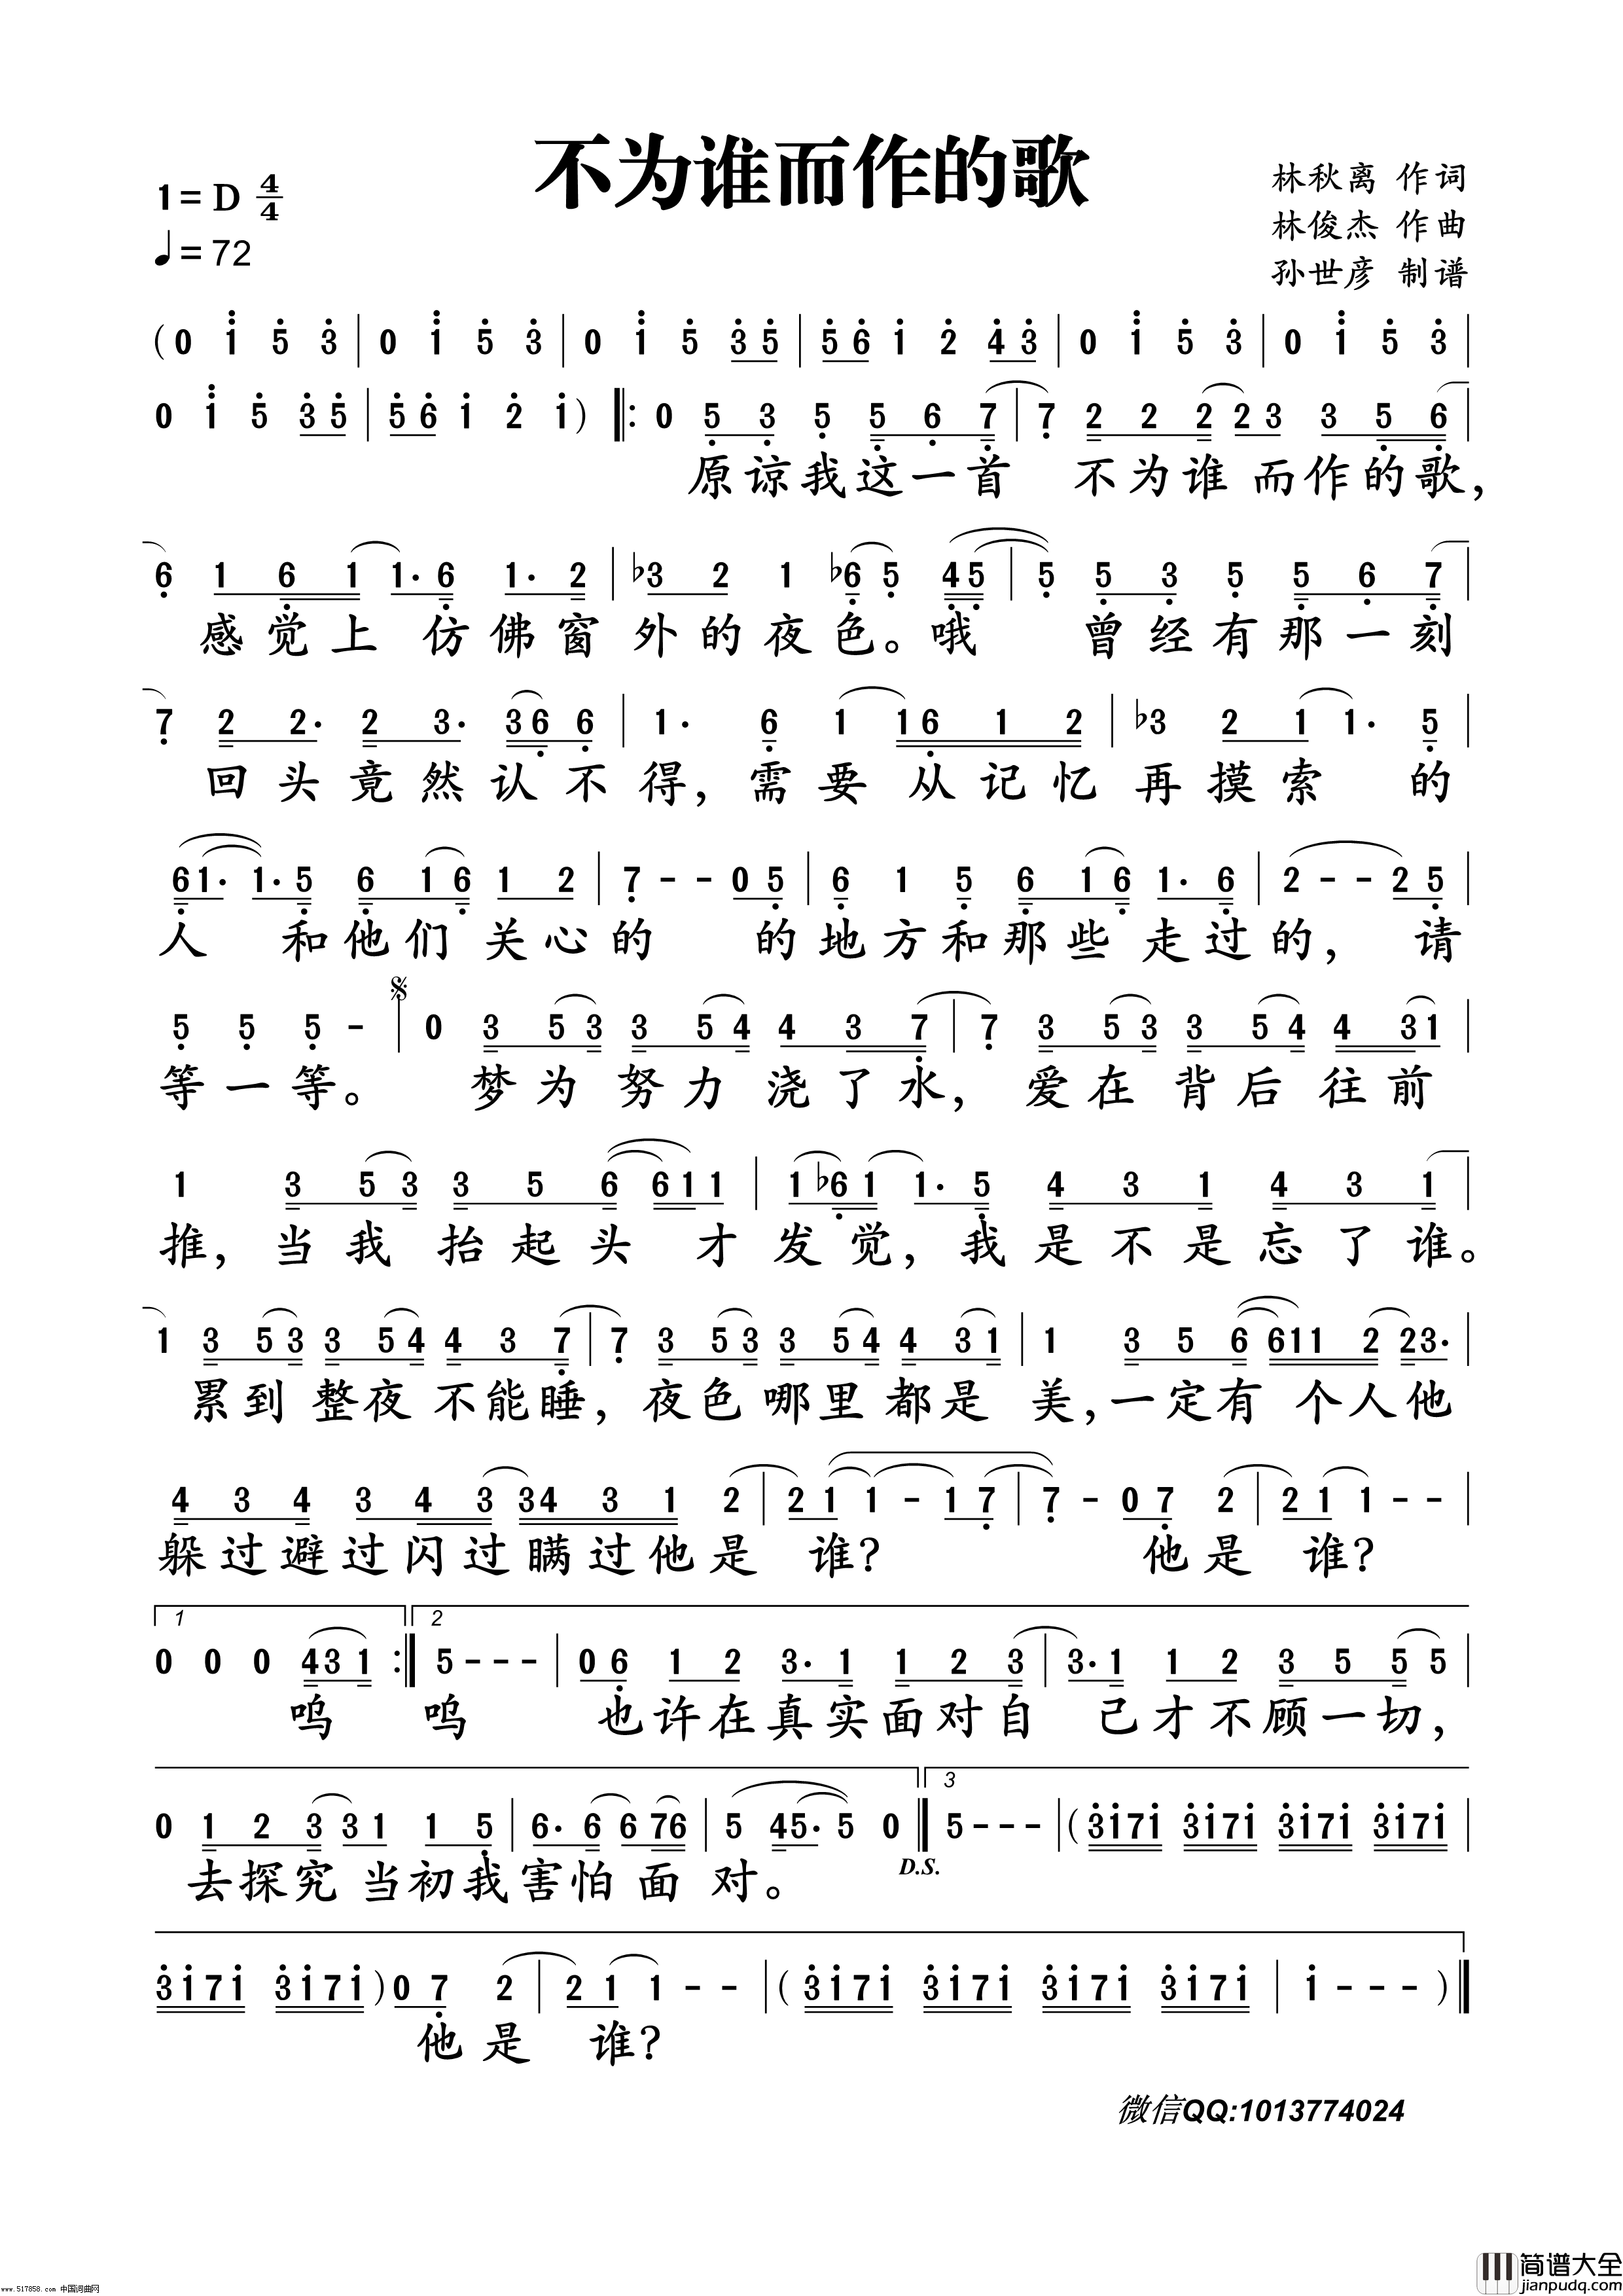 不为谁而作的歌
1=D 4/4
♩=72
林秋离 作词
林俊杰 作曲
孙世彦 制谱
(0 1 5 3 | 0 1 5 3 | 0 1 5 3 5 | 5 6 1 2 4 3 | 0 1 5 3 | 0 1 5 3 |
0 1 5 3 5 | 5 6 1 2 1) ‖: 0 5 3 5 5 6 7 | 7 2 2 2 2 3 3 5 6 |
原谅我这一首 不为谁而作的歌,
6 1 6 1 1· 6 1· 2 | ♭3 2 1 ♭6 5 4 5 | 5 5 3 5 5 6 7 |
感觉上仿佛窗外的夜色。哦 曾经有那一刻
7 2 2· 2 3· 3 6 6 | 1· 6 1 1 6 1 2 | ♭3 2 1 1· 5 |
回头竟然认不得,需要从记忆再摸索的
6 1· 1· 5 6 1 6 1 2 | 7 - - 0 5 | 6 1 5 6 1 6 1· 6 | 2 - - 2 5 |
人 和他们关心的 的地方和那些走过的, 请
5 5 5 - | 0 3 5 3 3 5 4 4 3 7 | 7 3 5 3 3 5 4 4 3 1 |
等一等。 梦为努力浇了水, 爱在背后往前
1 3 5 3 3 5 6 6 1 1 | 1 ♭6 1 1· 5 4 3 1 4 3 1 |
推, 当我抬起头才发觉, 我是不是忘了谁。
1 3 5 3 3 5 4 4 3 7 | 7 3 5 3 3 5 4 4 3 1 | 1 3 5 6 6 1 1 2 2 3· |
累到整夜不能睡, 夜色哪里都是美,一定有个人他
4 3 4 3 4 3 3 4 3 1 2 | 2 1 1 - 1 7 | 7 - 0 7 2 | 2 1 1 - - |
躲过避过闪过瞒过他是谁? 他是谁?
1 2
0 0 0 4 3 1 :‖ 5 - - - | 0 6 1 2 3· 1 1 2 3 | 3· 1 1 2 3 5 5 5 |
呜 呜 也许在真实面对自己才不顾一切,
3
0 1 2 3 3 1 1 5 | 6· 6 6 7 6 | 5 4 5· 5 0 ‖ 5 - - - | (3 1 7 1 3 1 7 1 3 1 7 1 3 1 7 1 |
D.S.
去探究当初我害怕面对。
3 1 7 1 3 1 7 1) 0 7 2 | 2 1 1 - - | (3 1 7 1 3 1 7 1 3 1 7 1 3 1 7 1 | 1 - - -) ‖
他是谁?
微信QQ:1013774024
www.517858.com 中国词曲网
简谱大全
jianpudq.com